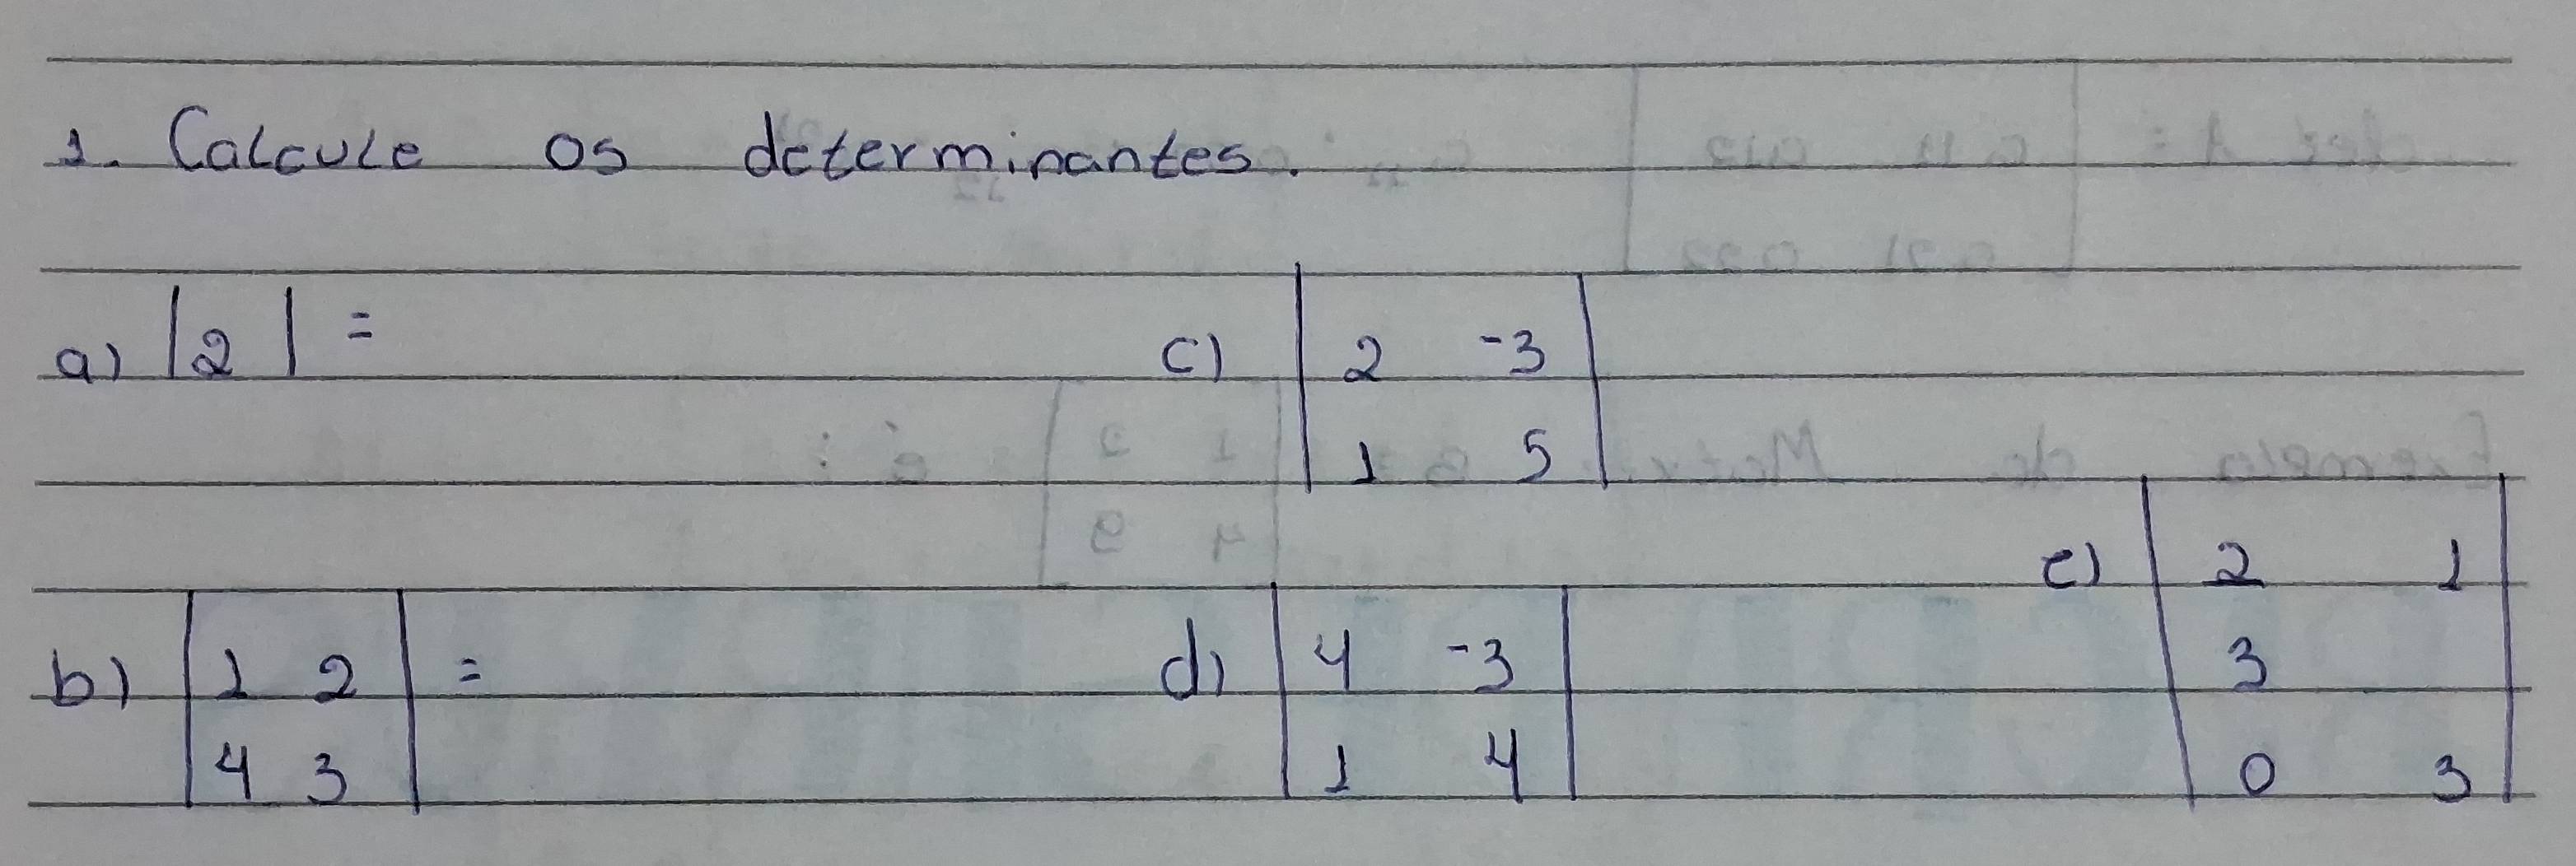 1. Calcule os determinantes.
a) |2| =
c) | 2 -3 |
| 1 5 |
b) | 1 2 | =
| 4 3 |
d) | 4 -3 |
| 1 4 |
e) | 2 1 |
| 3 |
| 0 3 |